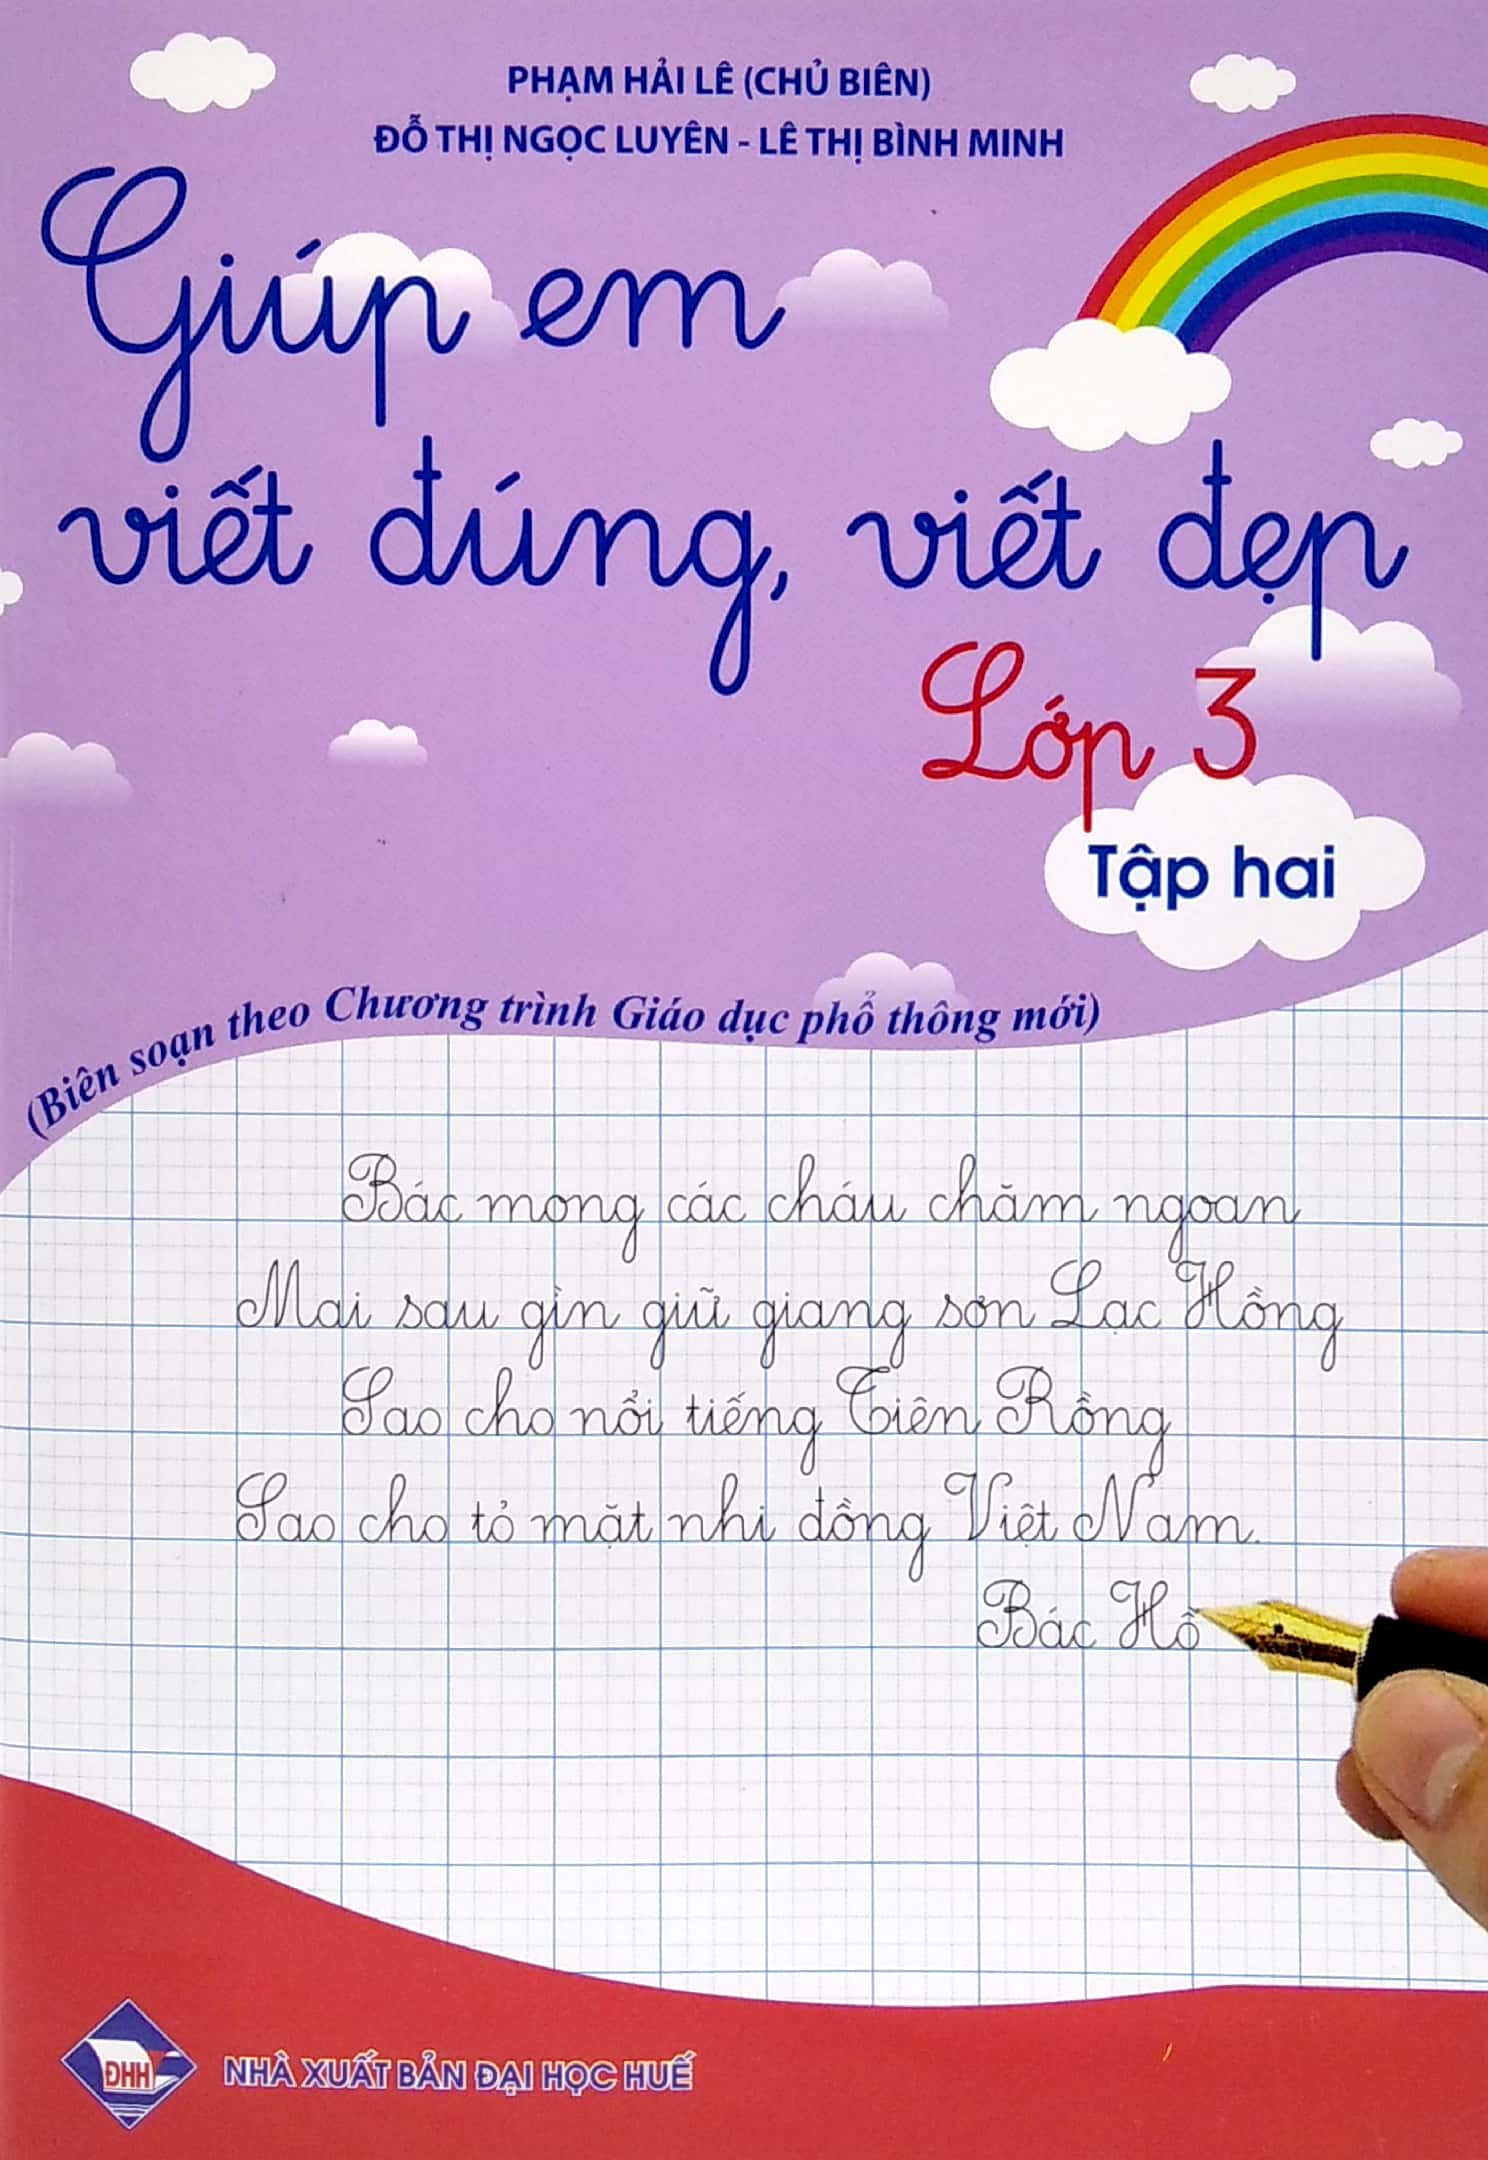 PHẠM HẢI LÊ (CHỦ BIÊN)
ĐỖ THỊ NGỌC LUYÊN - LÊ THỊ BÌNH MINH
Giúp em
viết đúng, viết đẹp
Lớp 3
Tập hai
(Biên soạn theo Chương trình Giáo dục phổ thông mới)
Bác mong các cháu chăm ngoan
Mai sau gìn giữ giang sơn Lạc Hồng
Sao cho nổi tiếng Tiên Rồng
Sao cho tỏ mặt nhi đồng Việt Nam.
Bác Hồ
ĐHH
NHÀ XUẤT BẢN ĐẠI HỌC HUẾ